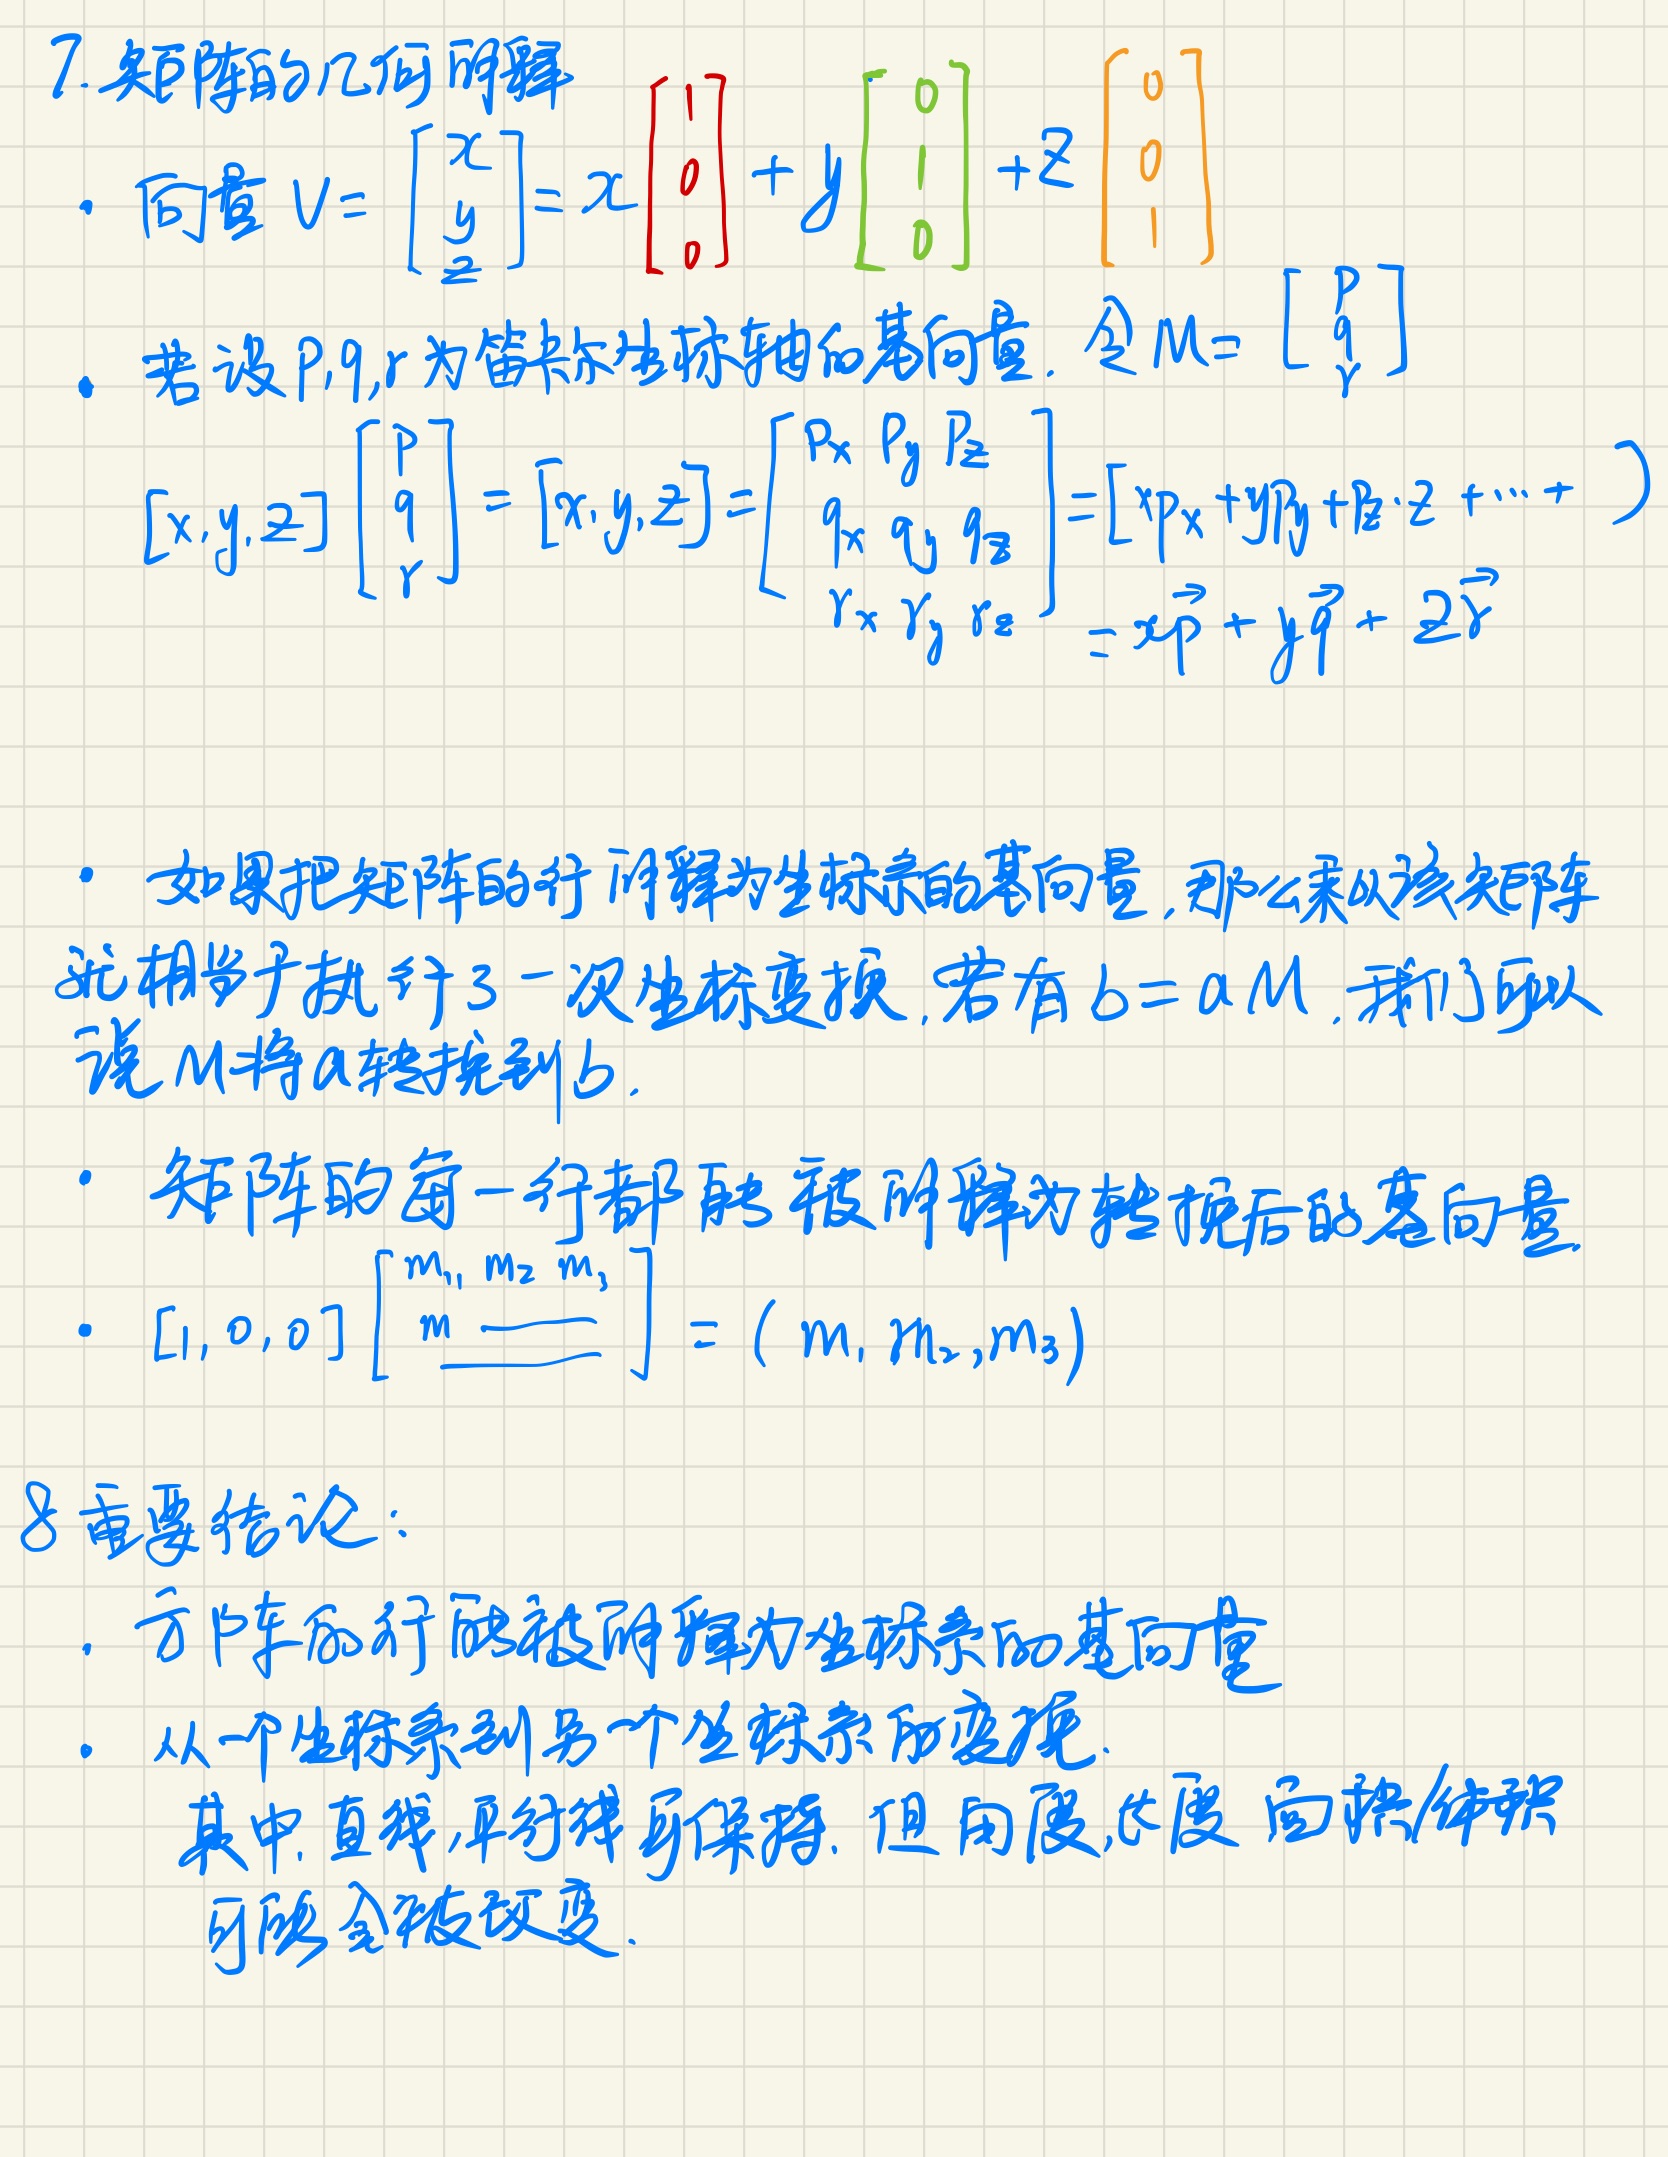 7. 矩阵的几何解释
· 向量 V = [x y z] = x [1 0 0] + y [0 1 0] + z [0 0 1]
· 若设 p,q,r 为笛卡尔坐标轴的基向量. 令 M = [p q r]
[x,y,z] [p q r] = [x,y,z] = [Px Py Pz qx qy qz rx ry rz] = [xPx + yPy + Pz·z + ... + )
= xp⃗ + yq⃗ + zr⃗
· 如果把矩阵的行解释为坐标系的基向量,那么乘以该矩阵
就相当于执行了一次坐标变换,若有 b = aM,我们可以
说 M 将 a 转换到 b.
· 矩阵的每一行都能被解释为转换后的基向量.
· [1, 0, 0] [m₁₁ m₂ m₃ m] = (m₁ m₂, m₃)
8 重要结论:
· 方阵的行能被解释为坐标系的基向量
· 从一个坐标系到另一个坐标系的变换.
其中,直线,平行线可保持,但角度,长度 面积/体积
可能会被改变.